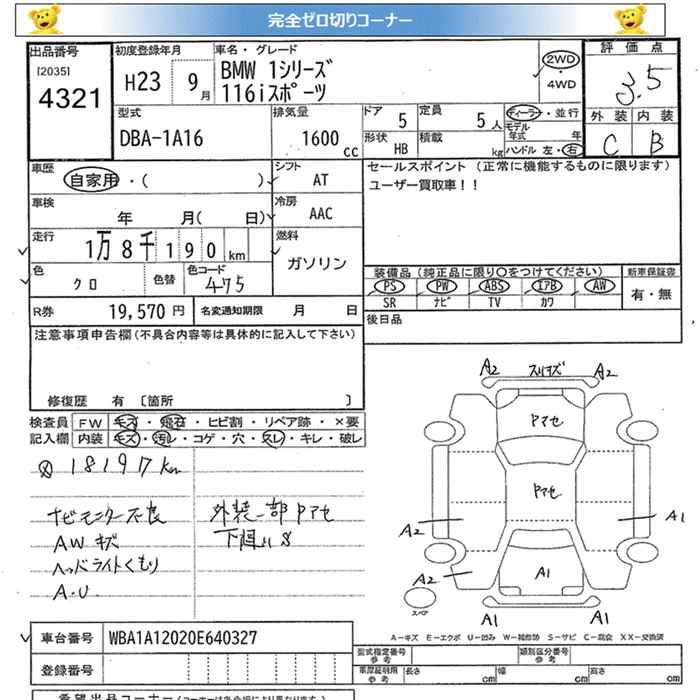 完全ゼロ切りコーナー
出品番号
[2035]
4321
初度登録年月
H23 9月
車名・グレード
BMW 1シリーズ
116iスポーツ
2WD
・
4WD
評価点
3.5
外装 内装
C B
型式
DBA-1A16
排気量
1600 cc
ドア 5
定員 5人
形状 HB
積載 kg
ディーラー・並行
モデル年式 年
ハンドル 左・右
車歴
自家用・( )
シフト
AT
車検
年 月( 日)
冷房
AAC
走行
1万8千190km
燃料
ガソリン
色
クロ
色替
色コード
475
R券 19,570円
名変通知期限 月 日
セールスポイント (正常に機能するものに限ります)
ユーザー買取車!!
装備品(純正品に限り〇をつけてください)
新車保証書
PS PW ABS エアB AW
SR ナビ TV カワ
有・無
後日品
注意事項申告欄(不具合内容等は具体的に記入して下さい)
修復歴 有 [箇所 ]
検査員 FW キズ・飛石・ヒビ割・リペア跡・×要
記入欄 内装 キズ・汚レ・コゲ・穴・スレ・キレ・破レ
18197km
ナビモニター不良
AWキズ
ヘッドライトくもり
A.U.
外装一部Pアセ
A2 A2
Pアセ
Pアセ
A2 A1
A2 A1
スペア
A1 A1
A-キズ E-エクボ U-凹み W-補修跡 S-サビ C-腐食 XX-交換済
車台番号 WBA1A12020E640327
登録番号
型式指定番号
参考
類別区分番号
参考
車庫証明用
参考
長さ cm 幅 cm 高さ cm
希望出品コーナー